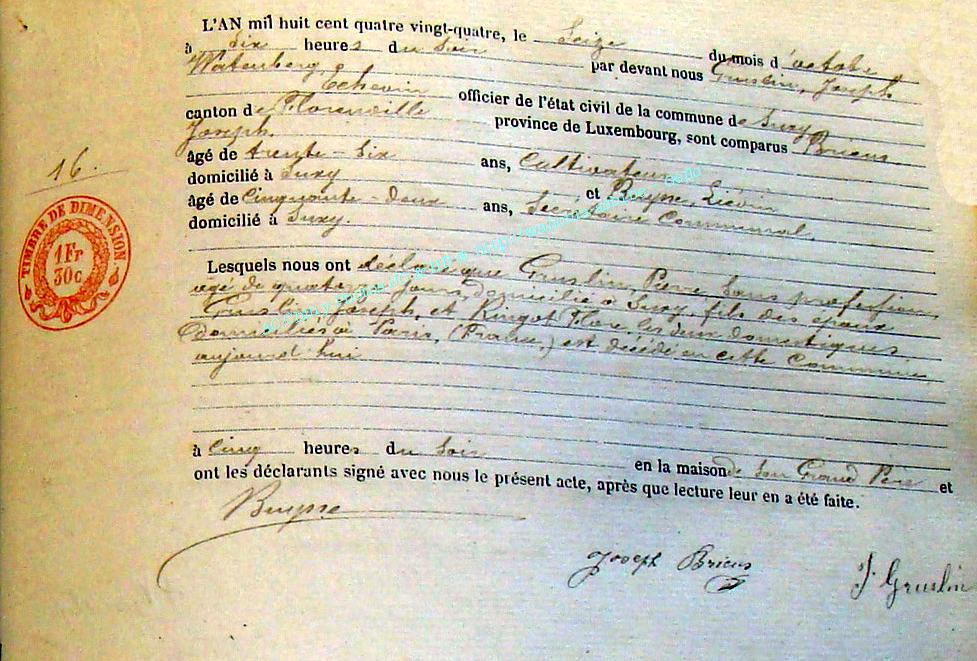 L'AN mil huit cent quatre vingt-quatre, le Seize du mois d'octobre
à Six heures du Soir par devant nous Gruslin, Joseph
Watenberg Echevin officier de l'état civil de la commune de Suxy
canton de Florenville province de Luxembourg, sont comparus Bricus
Joseph.
âgé de trente-Six ans, Cultivateur
domicilié à Suxy et Buysse, Liévin
âgé de Cinquante-Deux ans, Secrétaire Communal,
domicilié à Suxy.
16.
TIMBRE DE DIMENSION
1 Fr
30c
Lesquels nous ont déclaré que Gruslin, Pierre, Sans profession,
agé de quatorze jours, domicilié à Suxy, fils des époux
Gruslin, Joseph, et Ringot, Flore, les deux domestiques
Domiciliés à Paris, (France,) est décédé en cette Commune,
aujourd'hui
à Cinq heures du Soir en la maison de Son Grand Père et
ont les déclarants signé avec nous le présent acte, après que lecture leur en a été faite.
Buysse
Joseph Bricus
J. Gruslin